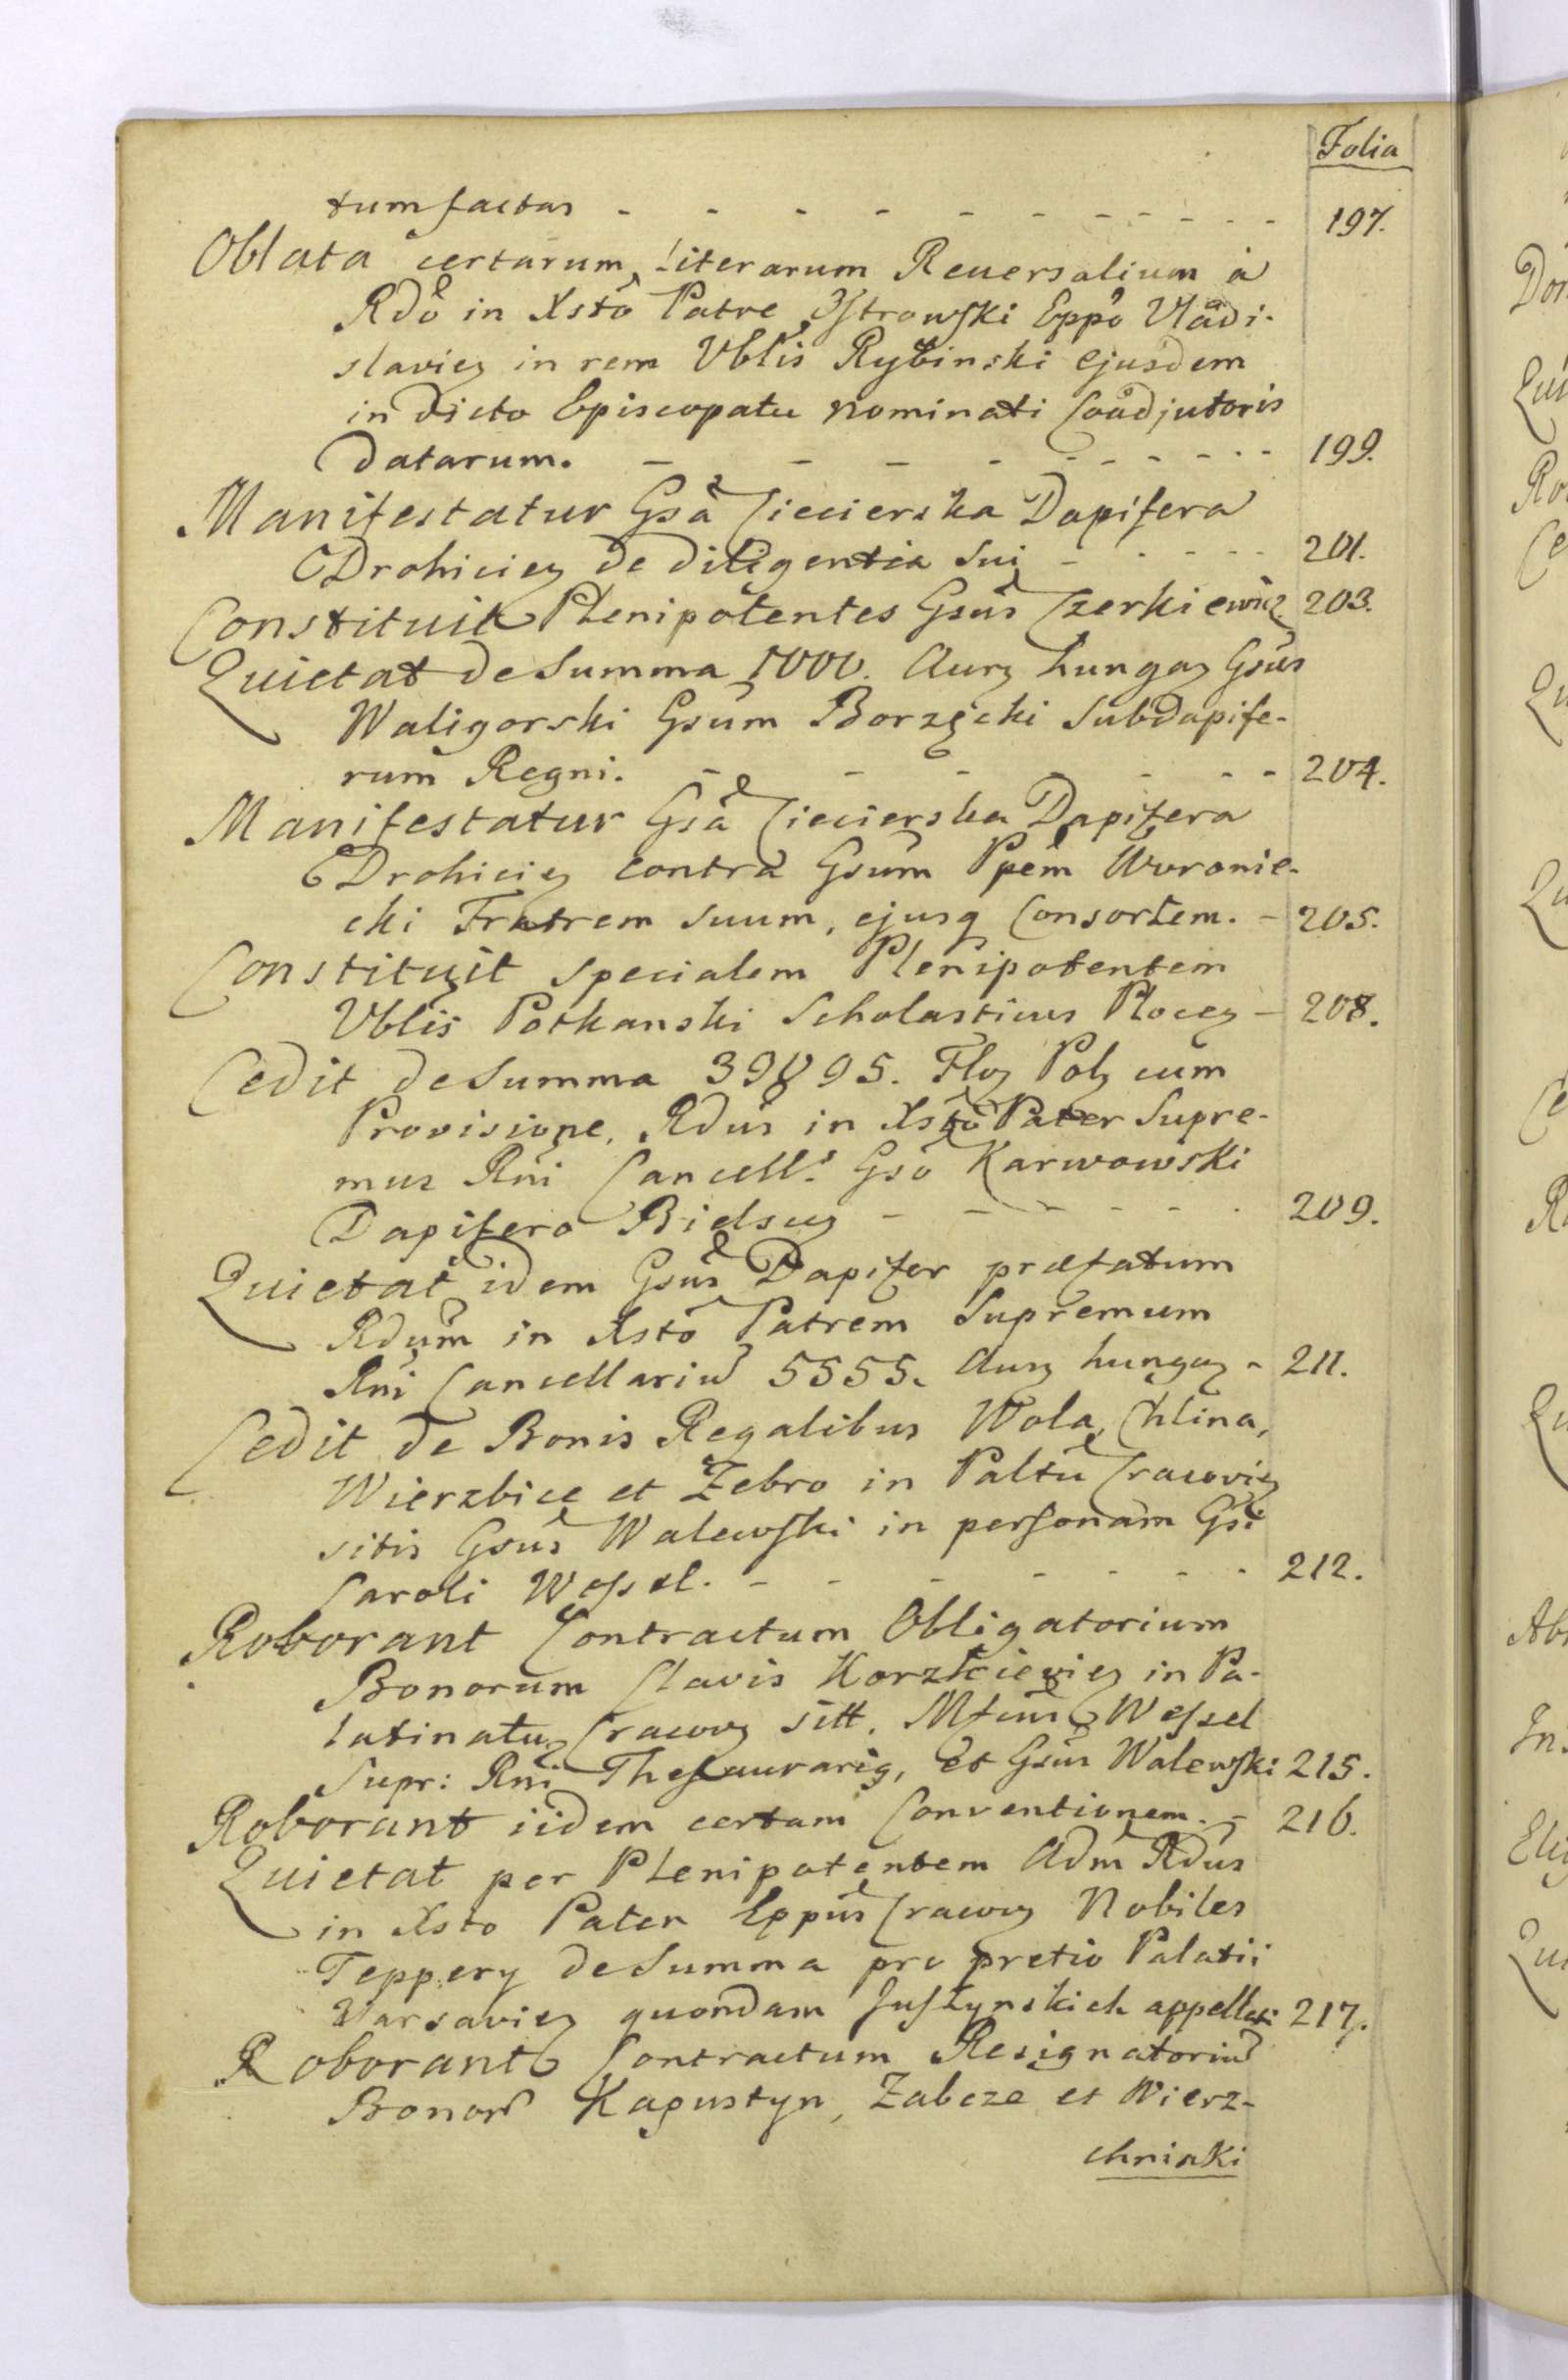 Folia
tum factas - - - - - - - - - - - 197.
Oblata certarum Literarum Reuersalium à
Rdo in Xsto Patre Ostrowski Eppo Vladi-
slavien in rem Vblis Rybinski ejusdem
in dicto Episcopatu nominati Coadjutoris
datarum. - - - - - - - - - - 199.
Manifestatur Gsa Ciecierska Dapifera
Drohicien de diligentia sui - - - - - 201.
Constituit Plenipotentes Gsus Czerkiewicz 203.
Quietat de Summa 1000. Aur hungar Gsus
Waligorski Gsum Borzęcki Subdapife-
rum Regni. - - - - - - - 204.
Manifestatur Gsa Ciecierska Dapifera
Drohicien contra Gsum Ppem Woronie-
cki Fratrem suum, ejusq Consortem. - 205.
Constituit specialem Plenipotentem
Vblis Potkanski Scholasticus Plocen - 208.
Cedit de Summa 39895. Flor Pol cum
Provisione, Rdus in Xsto Pater Supre-
mus Rni Cancell: Gso Karwowski
Dapifero Bielscen - - - - - - - 209.
Quietat idem Gsus Dapifer præfatum
Rdum in Xsto Patrem Supremum
Rni Cancellariu 5555. Aur hungar - 211.
Cedit de Bonis Regalibus Wola, Chlina,
Wierzbice et Żebro in Paltu Cracovien
sitis Gsus Walewski in personam Gsi
Caroli Wessel. - - - - - - - 212.
Roborant Contractum Obligatorium
Bonorum Clavis Korzkievien in Pa-
latinatu Cracov sitt. Mfcus Wessel
Supr: Rni Thesaurarius, et Gsus Walewski 215.
Roborant iidem certam Conventionem. - 216.
Quietat per Plenipotentem Adm Rdus
in Xsto Pater Eppus Cracov Nobiles
Teppery de Summa pro pretio Palatii
Varsavien quondam Juszynskich appellati 217.
Roborant Contractum Resignatoriu
Bonor Kapustyn, Zabcze et Wierz-
chniaki